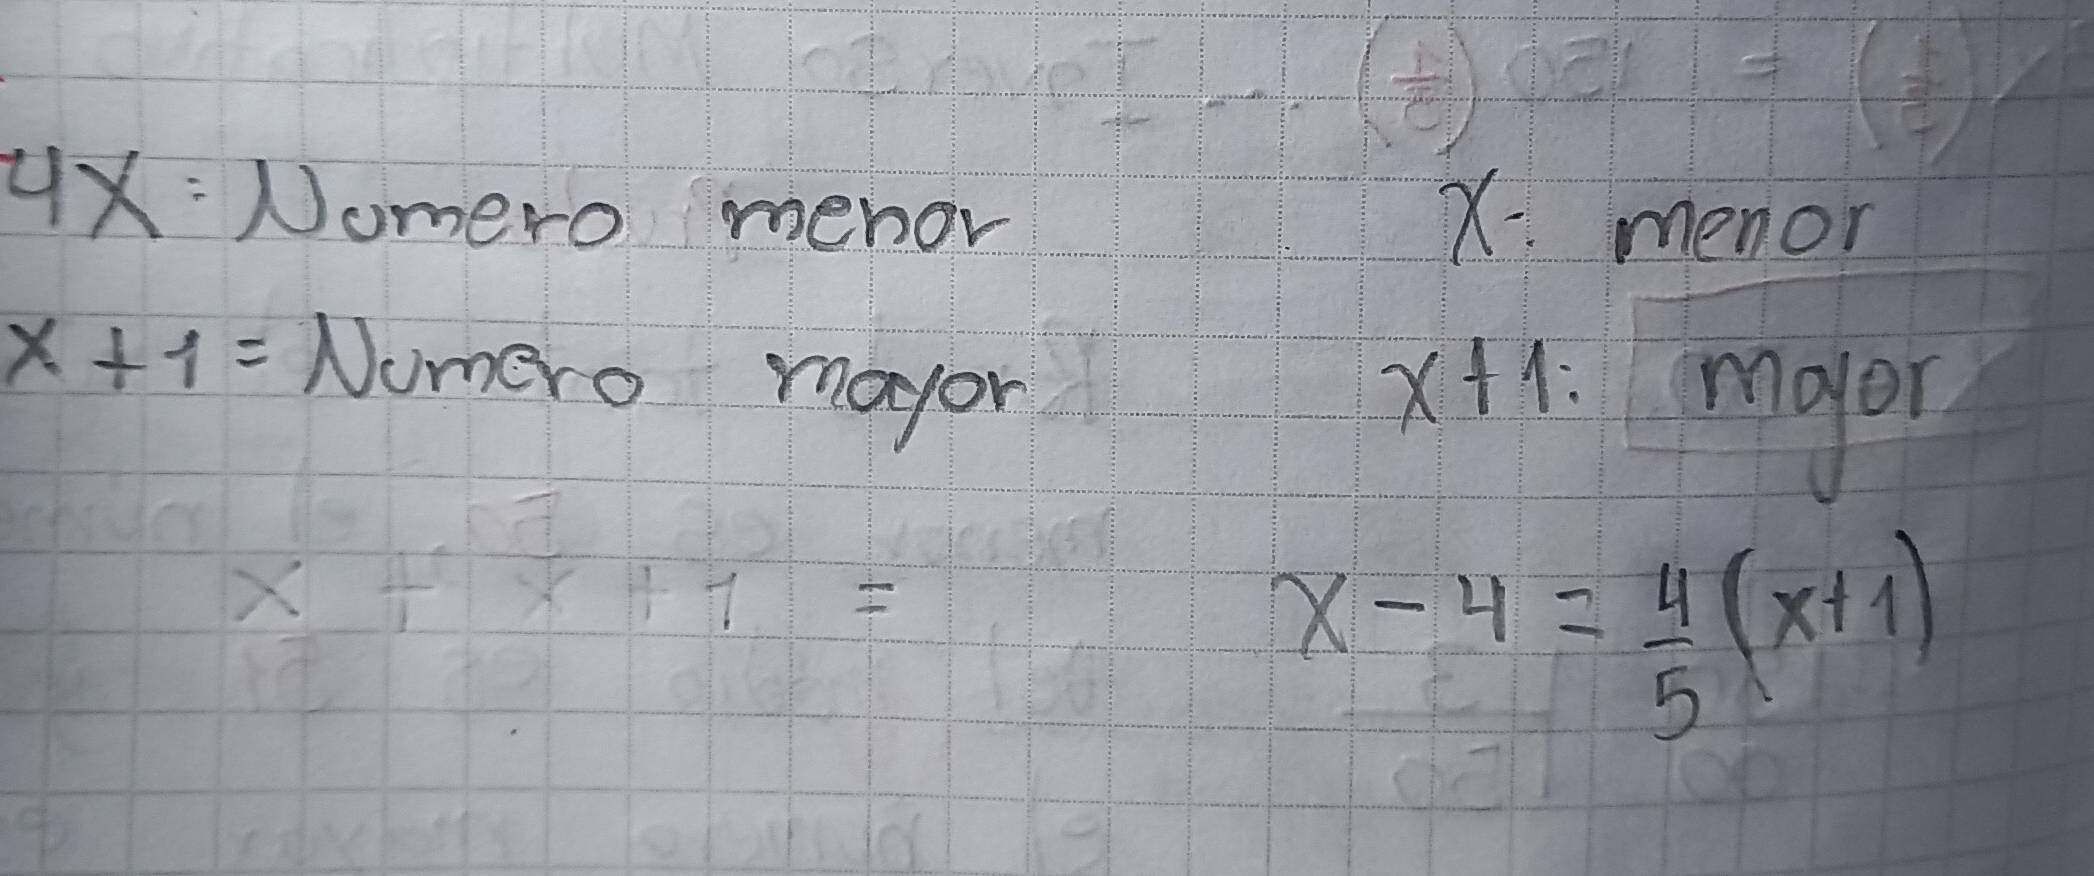 4X: Numero menor
x+1= Numero mayor
x + x + 1 =
X: menor
x+1: mayor
X-4 = 4/5 (x+1)